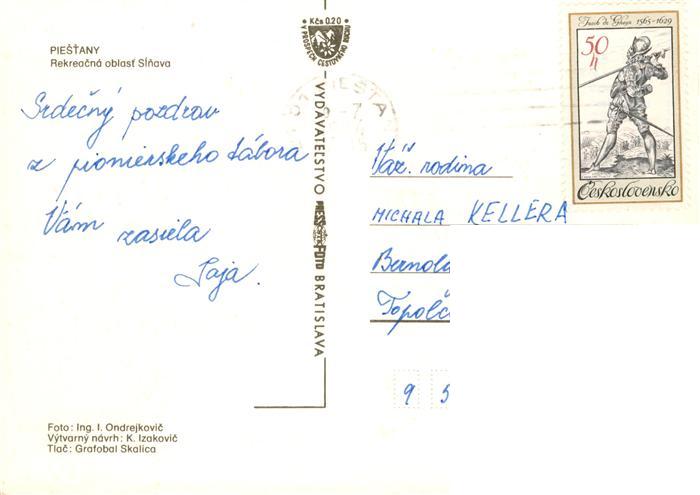 PIEŠŤANY
Rekreačná oblasť Sĺňava
Srdečný pozdrav
z pionierskeho tábora
Vám zasiela
Kčs 0,20
V PROSPECH CESTOVNÉHO RUCHU
VYDAVATEĽSTVO PRESSFOTO BRATISLAVA
Jacob de Gheyn 1565-1629
50 h
Československo
Váž. rodina
MICHALA KELLERA
Bernola
Topolč
9 5
Foto: Ing. I. Ondrejkovič
Výtvarný návrh: K. Izakovič
Tlač: Grafobal Skalica